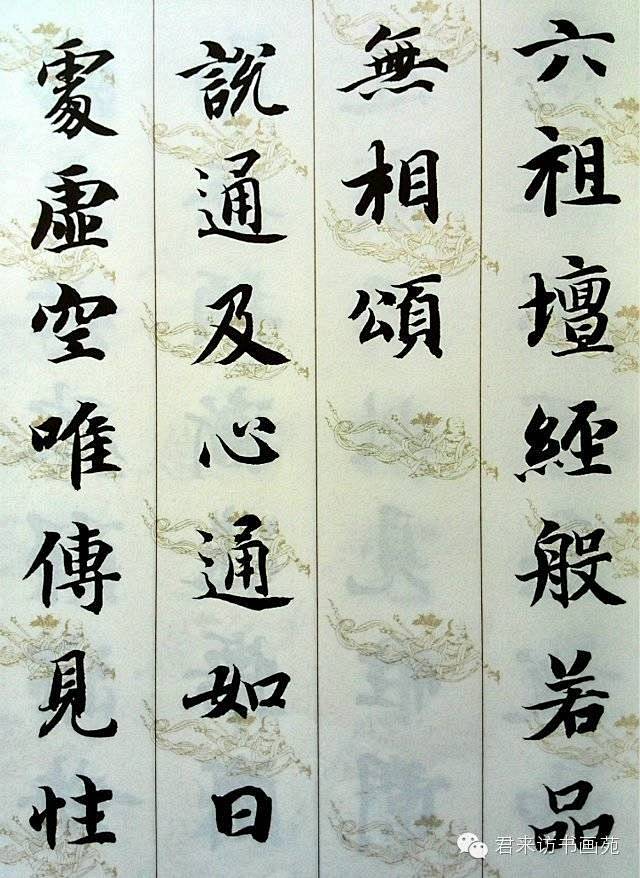 六祖壇經般若品
無相頌
說通及心通如日
處虛空唯傳見性
君来访书画苑